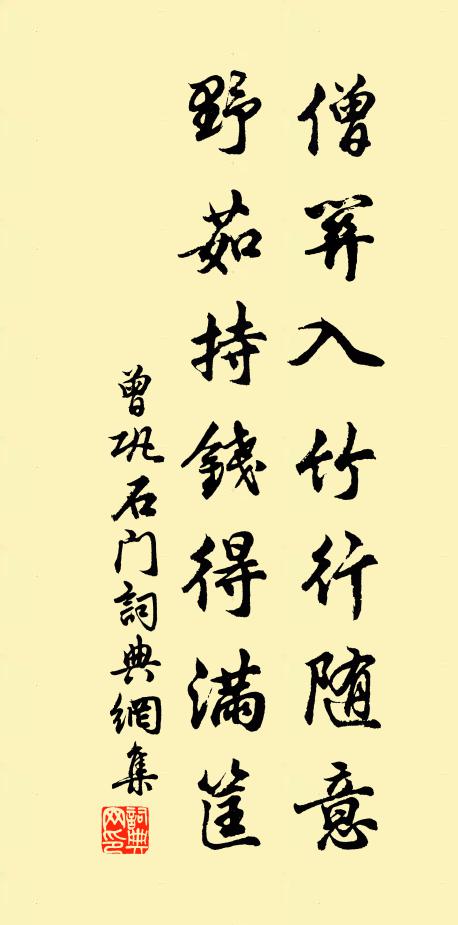 僧入竹行随意
野茹持錢得滿筐
曾巩石门詞典網集
詞典网印